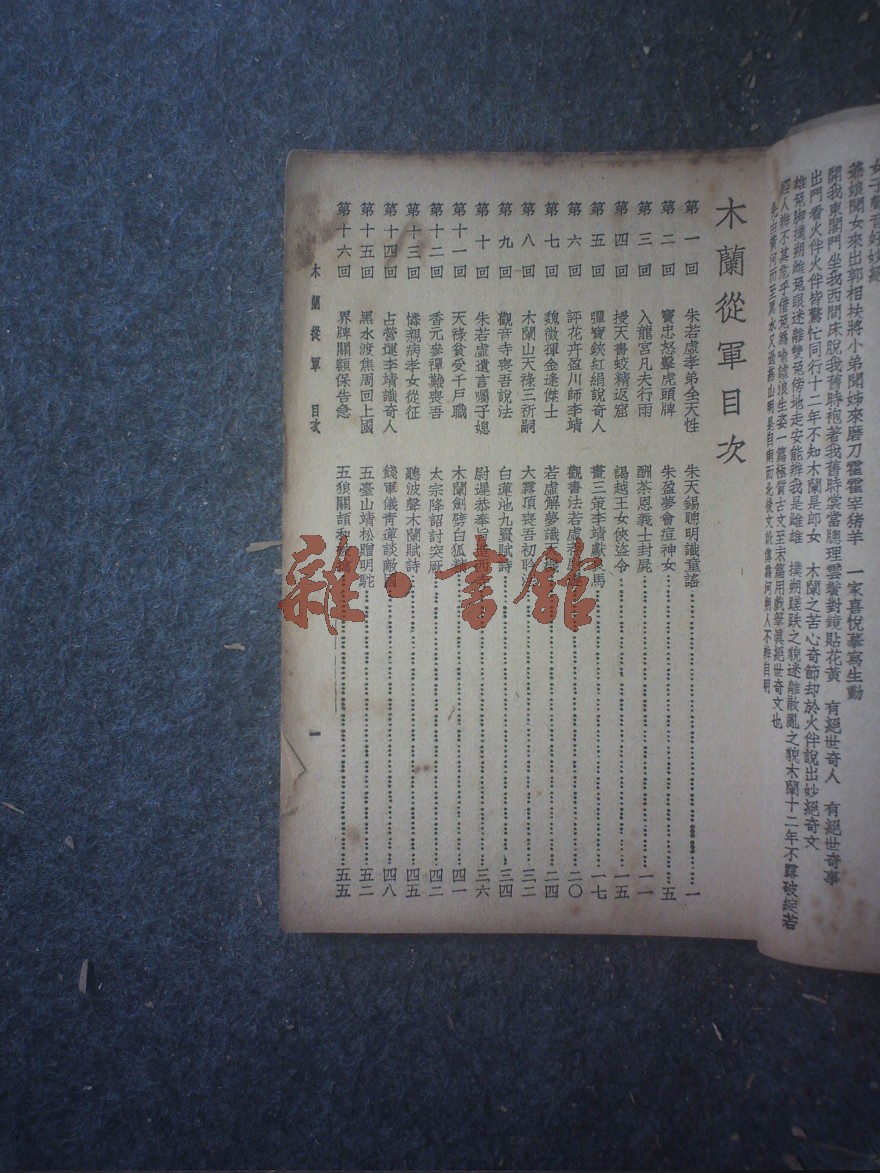 爺娘聞女來出郭相扶將小弟聞姊來磨刀霍霍宰猪羊　一家喜悅摹寫生動
開我東閣門坐我西間床脫我舊時袍著我舊時裳當牕理雲鬢對鏡貼花黃　有絕世奇人　有絕世奇事
出門看火伴火伴皆驚忙同行十二年不知木蘭是郎女　木蘭之苦心奇節却於火伴說出妙絕奇文
雄兔脚撲朔雌兔眼迷離雙兔傍地走安能辨我是雄雌　撲朔蹉跌之貌迷離散亂之貌木蘭十二年不露破綻若
木蘭從軍目次
第一回　朱若虛孝弟全天性　朱天錫聰明識童謠　一
第二回　竇忠怒擊虎頭牌　朱盈夢會痘神女　五
第三回　入龍宮凡夫行雨　酬茶恩義士封屍　一一
第四回　授天書蛟精返窟　謁越王女俠盜令　一五
第五回　彈寶鋏紅絹說奇人　畫三策李靖獻　馬　一七
第六回　評花卉盈川師李靖　觀書法若虛　二〇
第七回　魏徵揮金逢傑士　若虛解夢識天　二四
第八回　木蘭山天祿三祈嗣　大霧頂喪吾初　三二
第九回　觀音寺喪吾說法　白蓮池九賢賦詩　三四
第十回　朱若虛遺言囑子媳　尉遲恭奉旨　西　三六
第十一回　天祿貧受千戶職　木蘭劍劈白狐精　四一
第十二回　香元參禪難喪吾　太宗降詔討突厥　四二
第十三回　憐親病孝女從征　聽波聲木蘭賦詩　四五
第十四回　占營運李靖識奇人　餞軍儀青蓮談敵　四八
第十五回　黑水渡焦周回上國　五臺山靖松贈明駝　五二
第十六回　界牌關額保告急　五狼關頡和　五五
木蘭從軍　目次　一
雜·書館